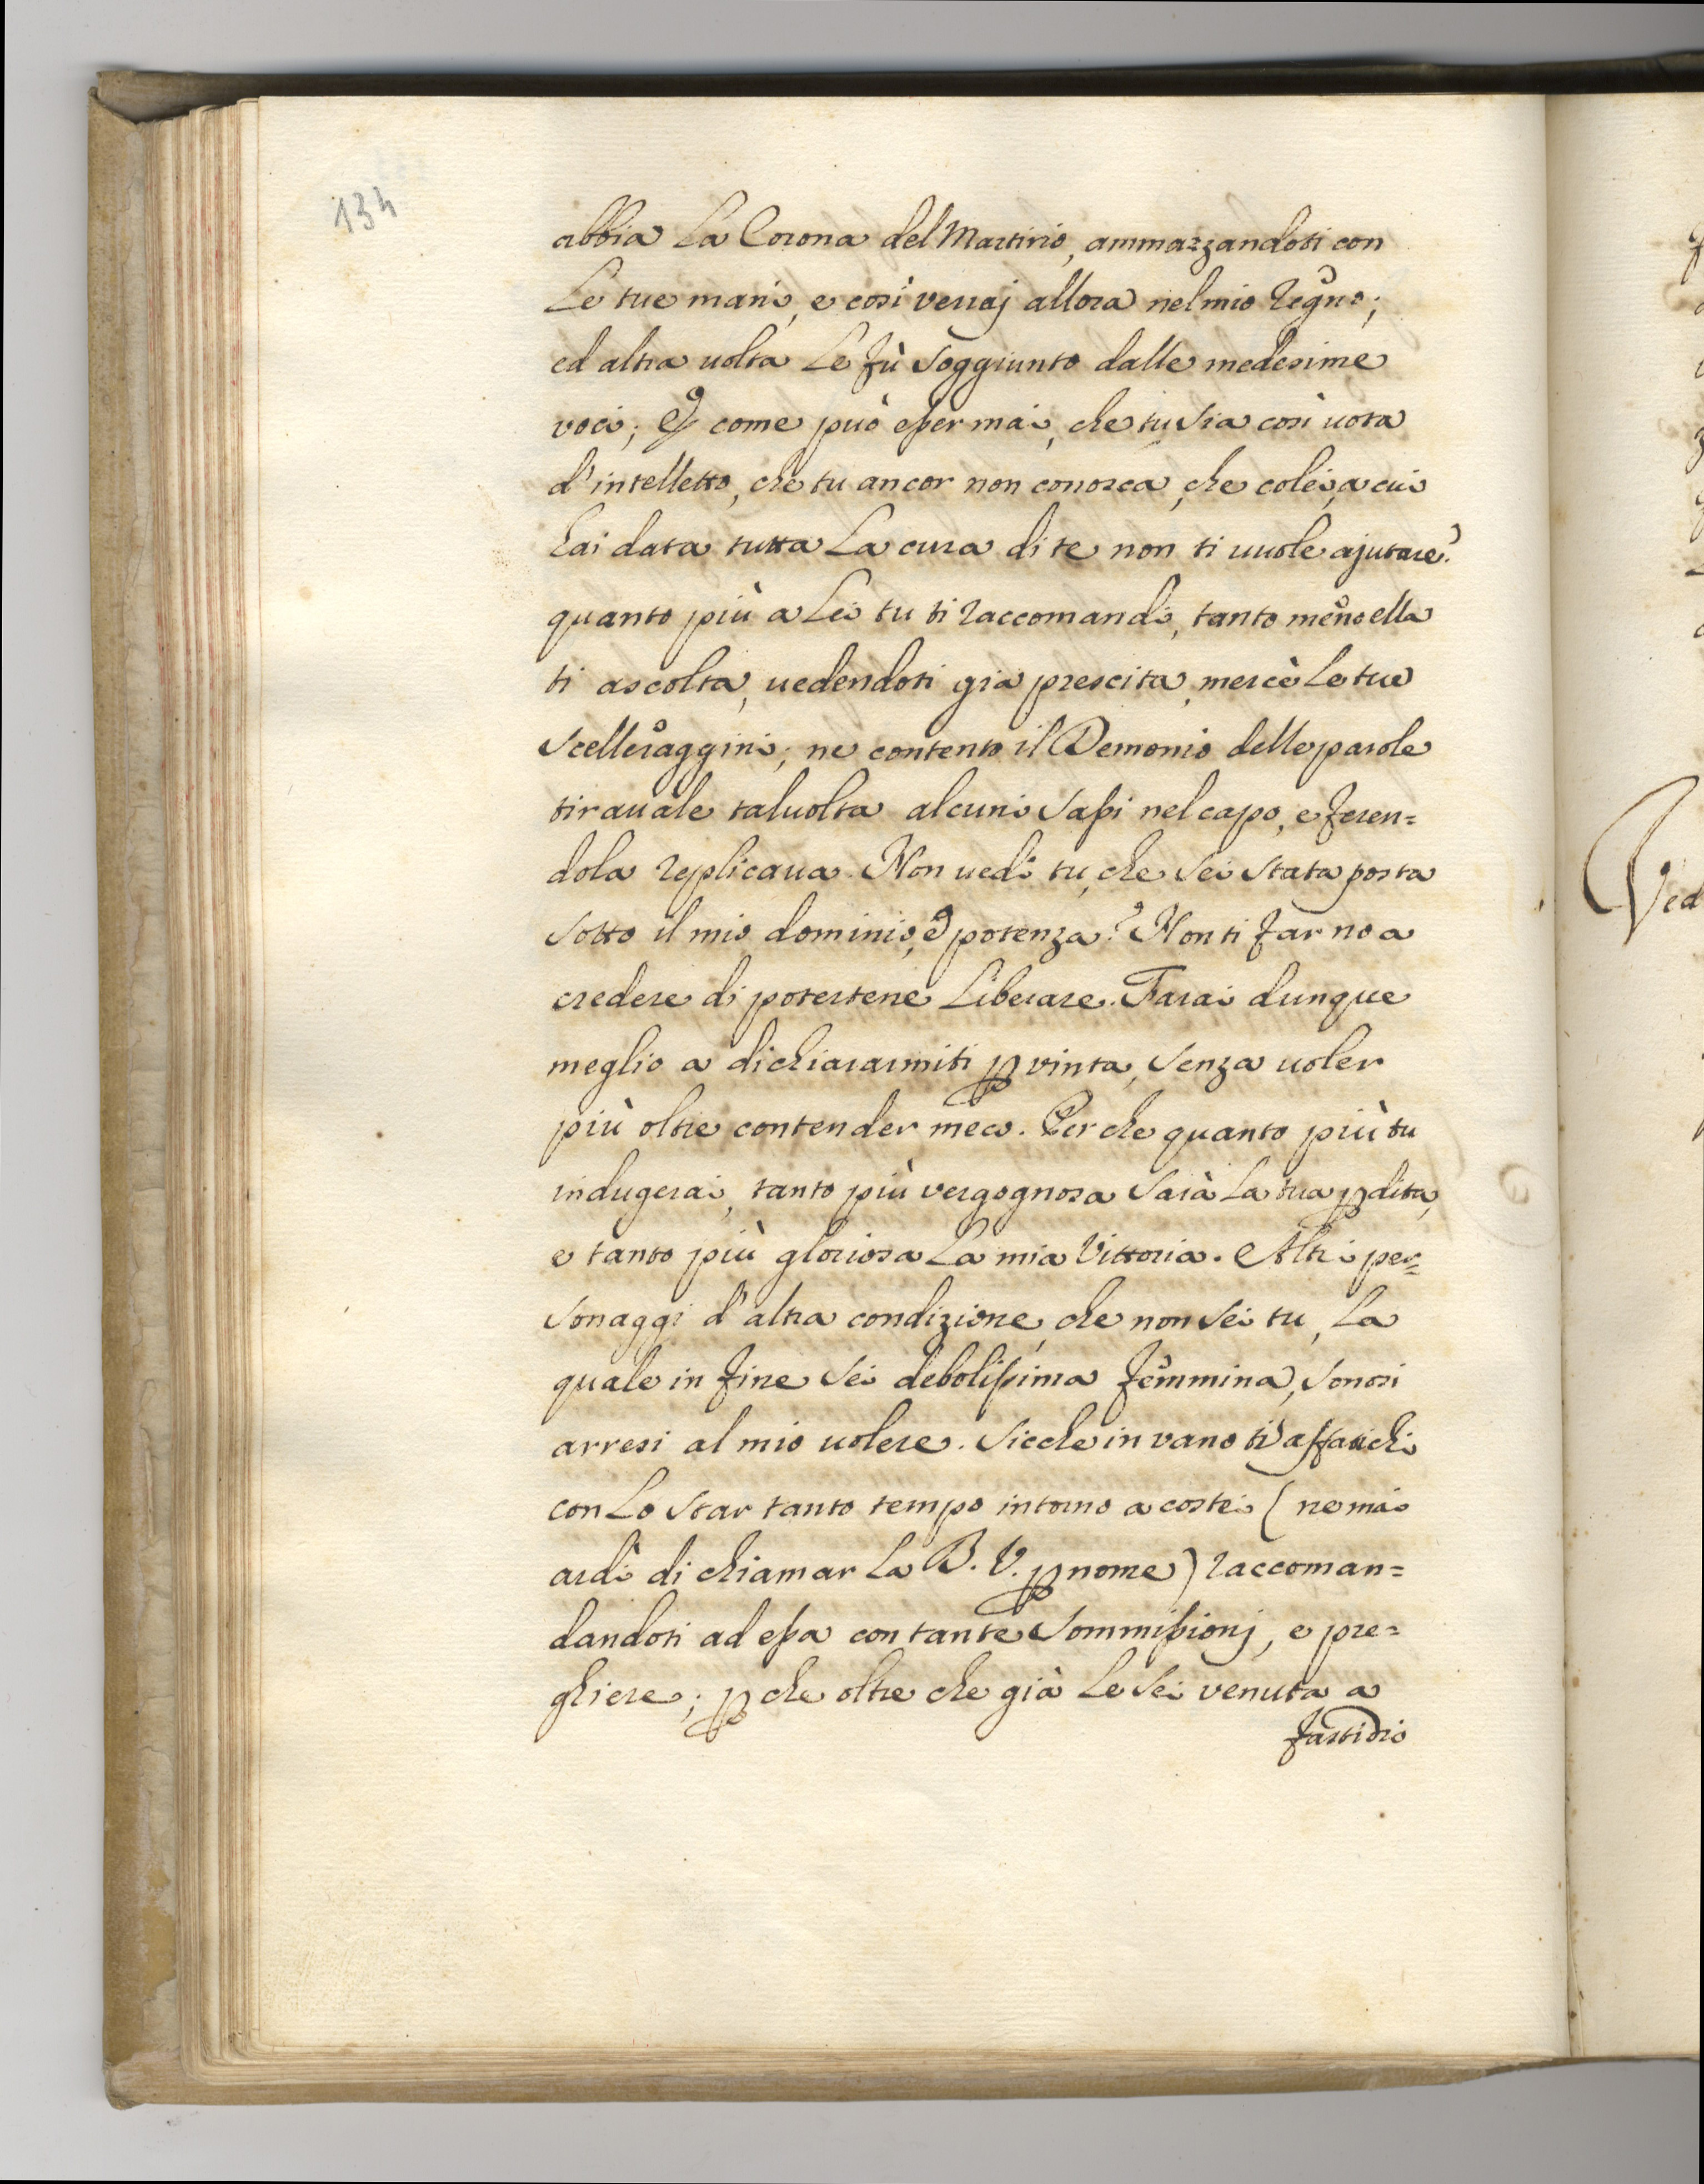 134
abbia La Corona del Martirio, ammazzandoti con
Le tue mani, e così verraj allora nel mio Regno;
ed altra uolta Le fù soggiunto dalle medesime
voci; E come può esser mai, che tu sia così uota
d'intelletto, che tu ancor non conosca, che colei, a cui
hai data tutta La cura di te non ti uuole ajutare?
quanto più a Lei tu ti raccomandi, tanto meno ella
ti ascolta, uedendoti già prescita, mercè Le tue
scelleraggini; ne contento il Demonio delle parole
tirauale taluolta alcuni sassi nel capo, e feren=
dola replicaua. Non uedi tu, che sei stata posta
sotto il mio dominio, e potenza? Non ti far no a
credere di potertene Liberare. Farai dunque
meglio a dichiararmiti p vinta, senza uoler
più oltre contender meco. Perche quanto più tu
indugerai, tanto più vergognosa sarà La tua pdita,
e tanto più gloriosa La mia Vittoria. Altri per=
sonaggi d'altra condizione, che non sei tu, La
quale in fine sei debolissima femmina, sonosi
arresi al mio uolere. Sicche in vano ti affatichi
con Lo star tanto tempo intorno a costei (ne mai
ardì di chiamar La B. V. p nome) raccoman=
dandoti ad essa con tante sommissionj, e pre=
ghiere; pche oltre che già Le sei venuta a
fastidio
Ved